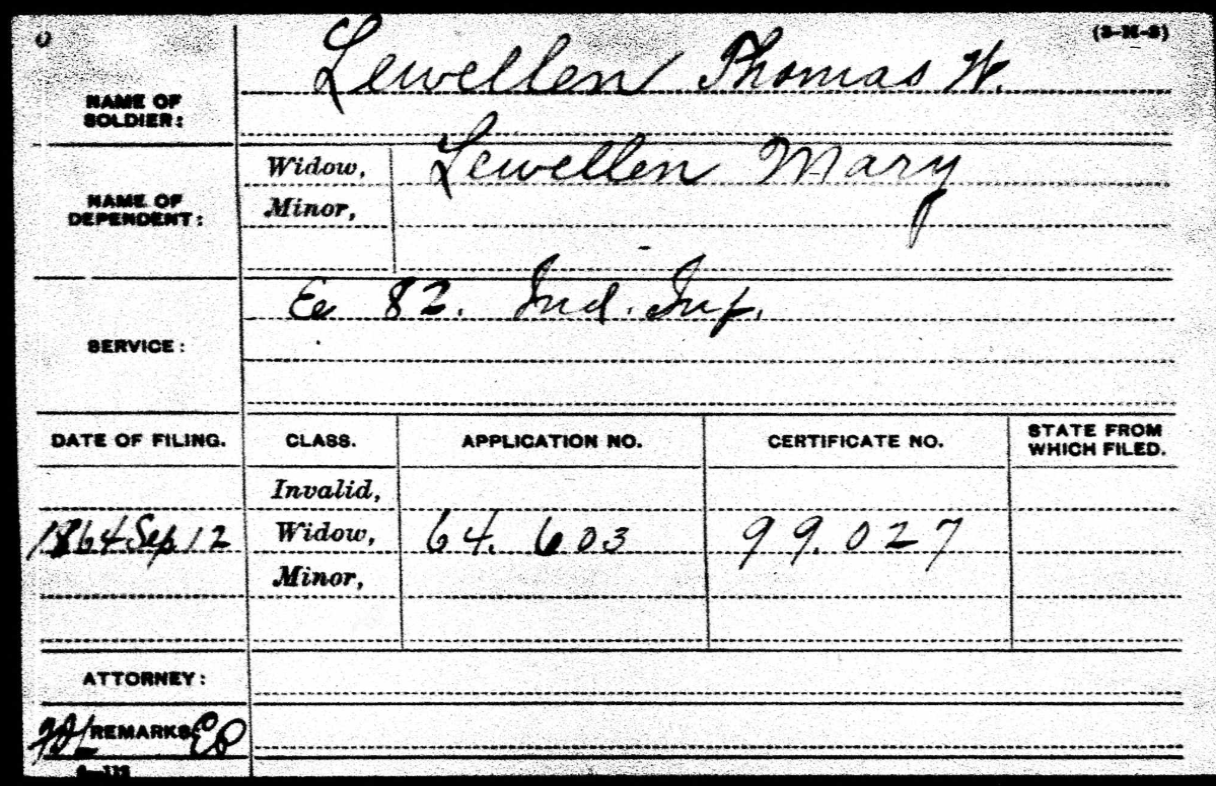 (3-M-3)
NAME OF SOLDIER: Lewellen Thomas W.
NAME OF DEPENDENT: Widow, Lewellen Mary
Minor,
SERVICE: E 82. Ind. Inf.
DATE OF FILING. CLASS. APPLICATION NO. CERTIFICATE NO. STATE FROM WHICH FILED.
Invalid,
1864 Sep 12 Widow, 64.603 99.027
Minor,
ATTORNEY:
REMARKS: